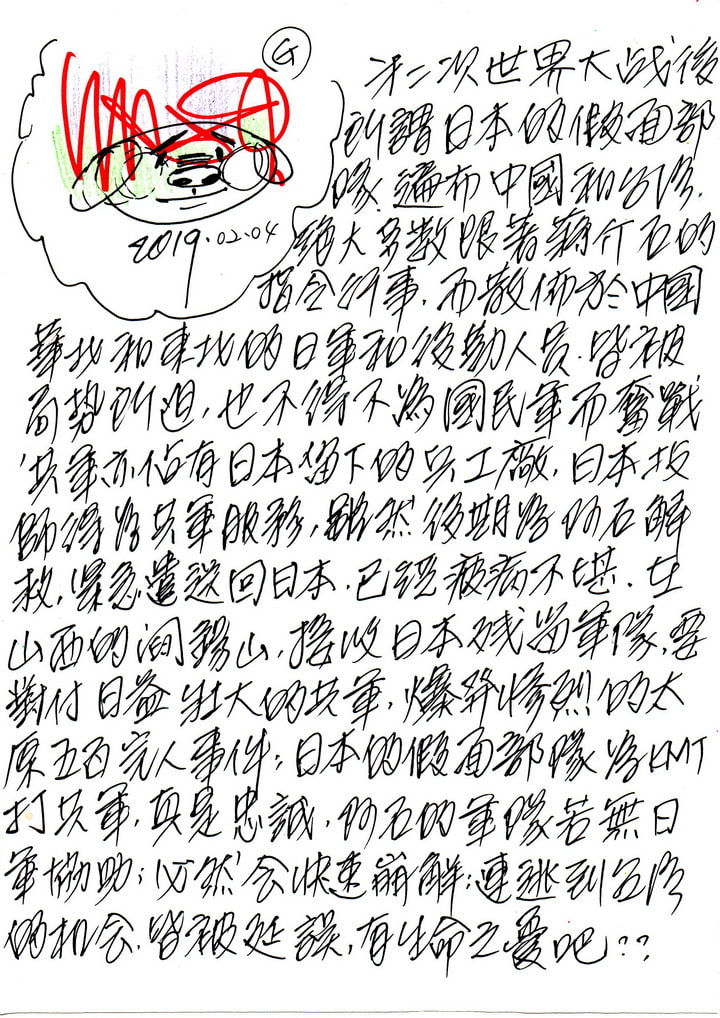 G
2019.02.04
第二次世界大战後
所謂日本的假面部
隊.遍布中國和台湾.
絕大多數跟著蔣介石的
指令行事.而散佈於中國
華北和東北的日軍和後勤人员.皆被
局勢所迫,也不得不為國民軍而奮戰
共軍亦佔有日本留下的兵工廠.日本技
師得為共軍服務,雖然後期為阿石解
救,緊急遣送回日本.已經疲病不堪.在
山西的阎錫山,接收日本残留軍隊,要
對付日益壯大的共軍,爆發慘烈的太
原五百完人事件;日本的假面部隊為KMT
打共軍,真是忠誠.阿石的軍隊若無日
軍協助;必然会快速崩解;連逃到台湾
的机会.皆被延誤,有生命之憂吧??